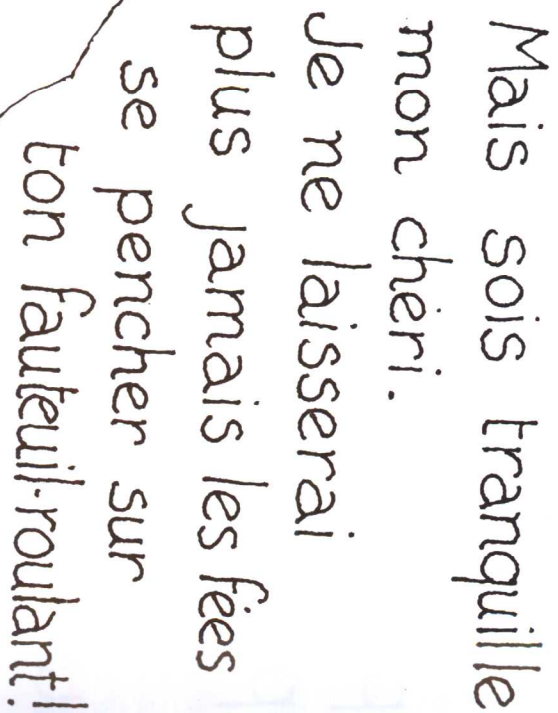 Mais sois tranquille
mon chéri.
Je ne laisserai
plus jamais les fées
se pencher sur
ton fauteuil-roulant!!